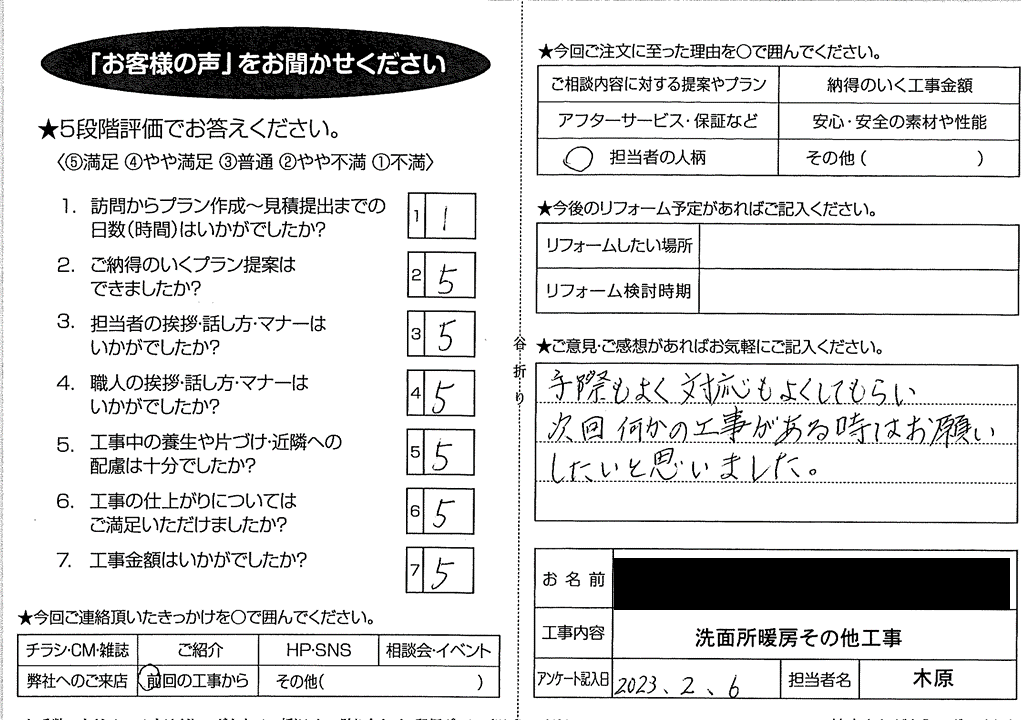 「お客様の声」をお聞かせください
★5段階評価でお答えください。
〈⑤満足 ④やや満足 ③普通 ②やや不満 ①不満〉
1. 訪問からプラン作成～見積提出までの
日数(時間)はいかがでしたか?
1 1
2. ご納得のいくプラン提案は
できましたか?
2 5
3. 担当者の挨拶・話し方・マナーは
いかがでしたか?
3 5
4. 職人の挨拶・話し方・マナーは
いかがでしたか?
4 5
5. 工事中の養生や片づけ・近隣への
配慮は十分でしたか?
5 5
6. 工事の仕上がりについては
ご満足いただけましたか?
6 5
7. 工事金額はいかがでしたか?
7 5
★今回ご連絡頂いたきっかけを○で囲んでください。
チラシ・CM・雑誌 ご紹介 HP・SNS 相談会・イベント
弊社へのご来店 前回の工事から その他( )
谷折り
★今回ご注文に至った理由を○で囲んでください。
ご相談内容に対する提案やプラン 納得のいく工事金額
アフターサービス・保証など 安心・安全の素材や性能
担当者の人柄 その他( )
★今後のリフォーム予定があればご記入ください。
リフォームしたい場所
リフォーム検討時期
★ご意見・ご感想があればお気軽にご記入ください。
手際もよく対応もよくしてもらい
次回何かの工事がある時はお願い
したいと思いました。
お名前
工事内容 洗面所暖房その他工事
アンケート記入日 2023、2、6 担当者名 木原